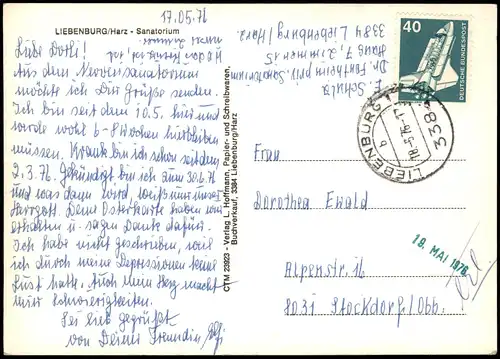 17.05.76
LIEBENBURG/Harz - Sanatorium
Liebe Dorli!
Aus dem Nervensanatorium
möchte ich Dir Grüße senden.
Ich bin seit dem 10.5. hier und
werde wohl 6-8 Wochen hierbleiben
müssen. Krank bin ich schon seit dem
2.3.76. Gekündigt bin ich zum 30.6.76
und was dann wird, weiß nur unser
Herrgott. Deine Osterkarte haben wir
erhalten u. sagen Danke dafür.
Ich habe nicht geschrieben, weil
ich durch meine Depressionen keine
Lust hatte. Auch mein Herz macht
mir Schwierigkeiten.
Sei lieb gegrüßt
von Deiner Freundin
CTM 23923 - Verlag L. Hoffmann, Papier- und Schreibwaren,
Buchverkauf, 3384 Liebenburg/Harz
E. Schulz
Dr. Fontheim priv. Sanatorium
Haus 7, Zimmer 15
3384 Liebenburg/Harz
40
DEUTSCHE BUNDESPOST
3384 LIEBENBURG 1
18.-5.76-17
b
Frau
Dorothea Ewald
Alpenstr. 16
8031 Stockdorf/Obb.!
19. MAI 1976